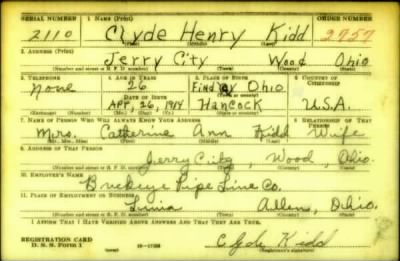 SERIAL NUMBER 1. NAME (Print) ORDER NUMBER
2110 Clyde Henry Kidd 2757
(First) (Middle) (Last)
2. ADDRESS (Print)
Jerry City Wood Ohio
(Number and street or R. F. D. number) (Town) (County) (State)
3. TELEPHONE 4. AGE IN YEARS 5. PLACE OF BIRTH 6. COUNTRY OF CITIZENSHIP
None 26 Findlay Ohio
DATE OF BIRTH
Apr. 26, 1914 Hancock U.S.A.
7. NAME OF PERSON WHO WILL ALWAYS KNOW YOUR ADDRESS 8. RELATIONSHIP OF THAT PERSON
Mrs. Catherine Ann Kidd Wife
(Mr., Mrs., Miss) (First) (Middle) (Last)
9. ADDRESS OF THAT PERSON
Jerry City, Wood, Ohio.
(Number and street or R. F. D. number) (Town) (County) (State)
10. EMPLOYER'S NAME
Buckeye Pipe Line Co.
11. PLACE OF EMPLOYMENT OR BUSINESS
Lima Allen, Ohio.
(Number and street or R. F. D. number) (Town) (County) (State)
I AFFIRM THAT I HAVE VERIFIED ABOVE ANSWERS AND THAT THEY ARE TRUE.
REGISTRATION CARD
D. S. S. FORM 1 Clyde Kidd
(Registrant's signature)